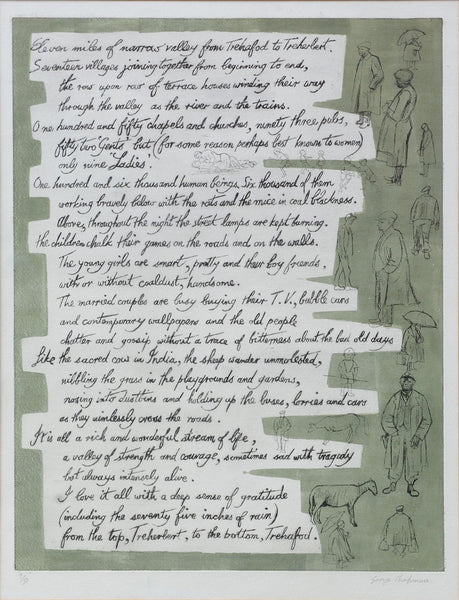 Eleven miles of narrow valley from Trehafod to Treherbert.
Seventeen villages joining together from beginning to end,
the row upon row of terrace houses winding their way
through the valley as the river and the trains.
One hundred and fifty chapels and churches, ninety three pubs,
fifty two "Gents" but (for some reason perhaps best known to women)
only nine "Ladies".
One hundred and six thousand human beings, Six thousand of them
working bravely below with the rats and the mice in coal blackness.
Above, throughout the night the street lamps are kept burning.
the children chalk their games on the roads and on the walls.
The young girls are smart, pretty and their boy friends,
with or without coaldust, handsome.
The married couples are busy buying their T.V., bubble cars
and contemporary wallpapers and the old people
chatter and gossip without a trace of bitterness about the bad old days
Like the sacred cow in India, the sheep wander unmolested,
nibbling the grass in the playgrounds and gardens,
nosing into dustbins and holding up the buses, lorries and cars
as they aimlessly cross the roads.
It is all a rich and wonderful stream of life,
a valley of strength and courage, sometimes sad with tragedy
but always intensely alive.
I love it all with a deep sense of gratitude
(including the seventy five inches of rain)
from the top, Treherbert, to the bottom, Trehafod.
George Chapman